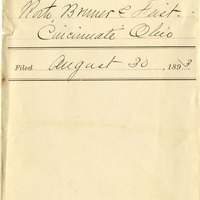 Roto, Bremer & Feist.
Cincinnati Ohio
Filed August 30 1893